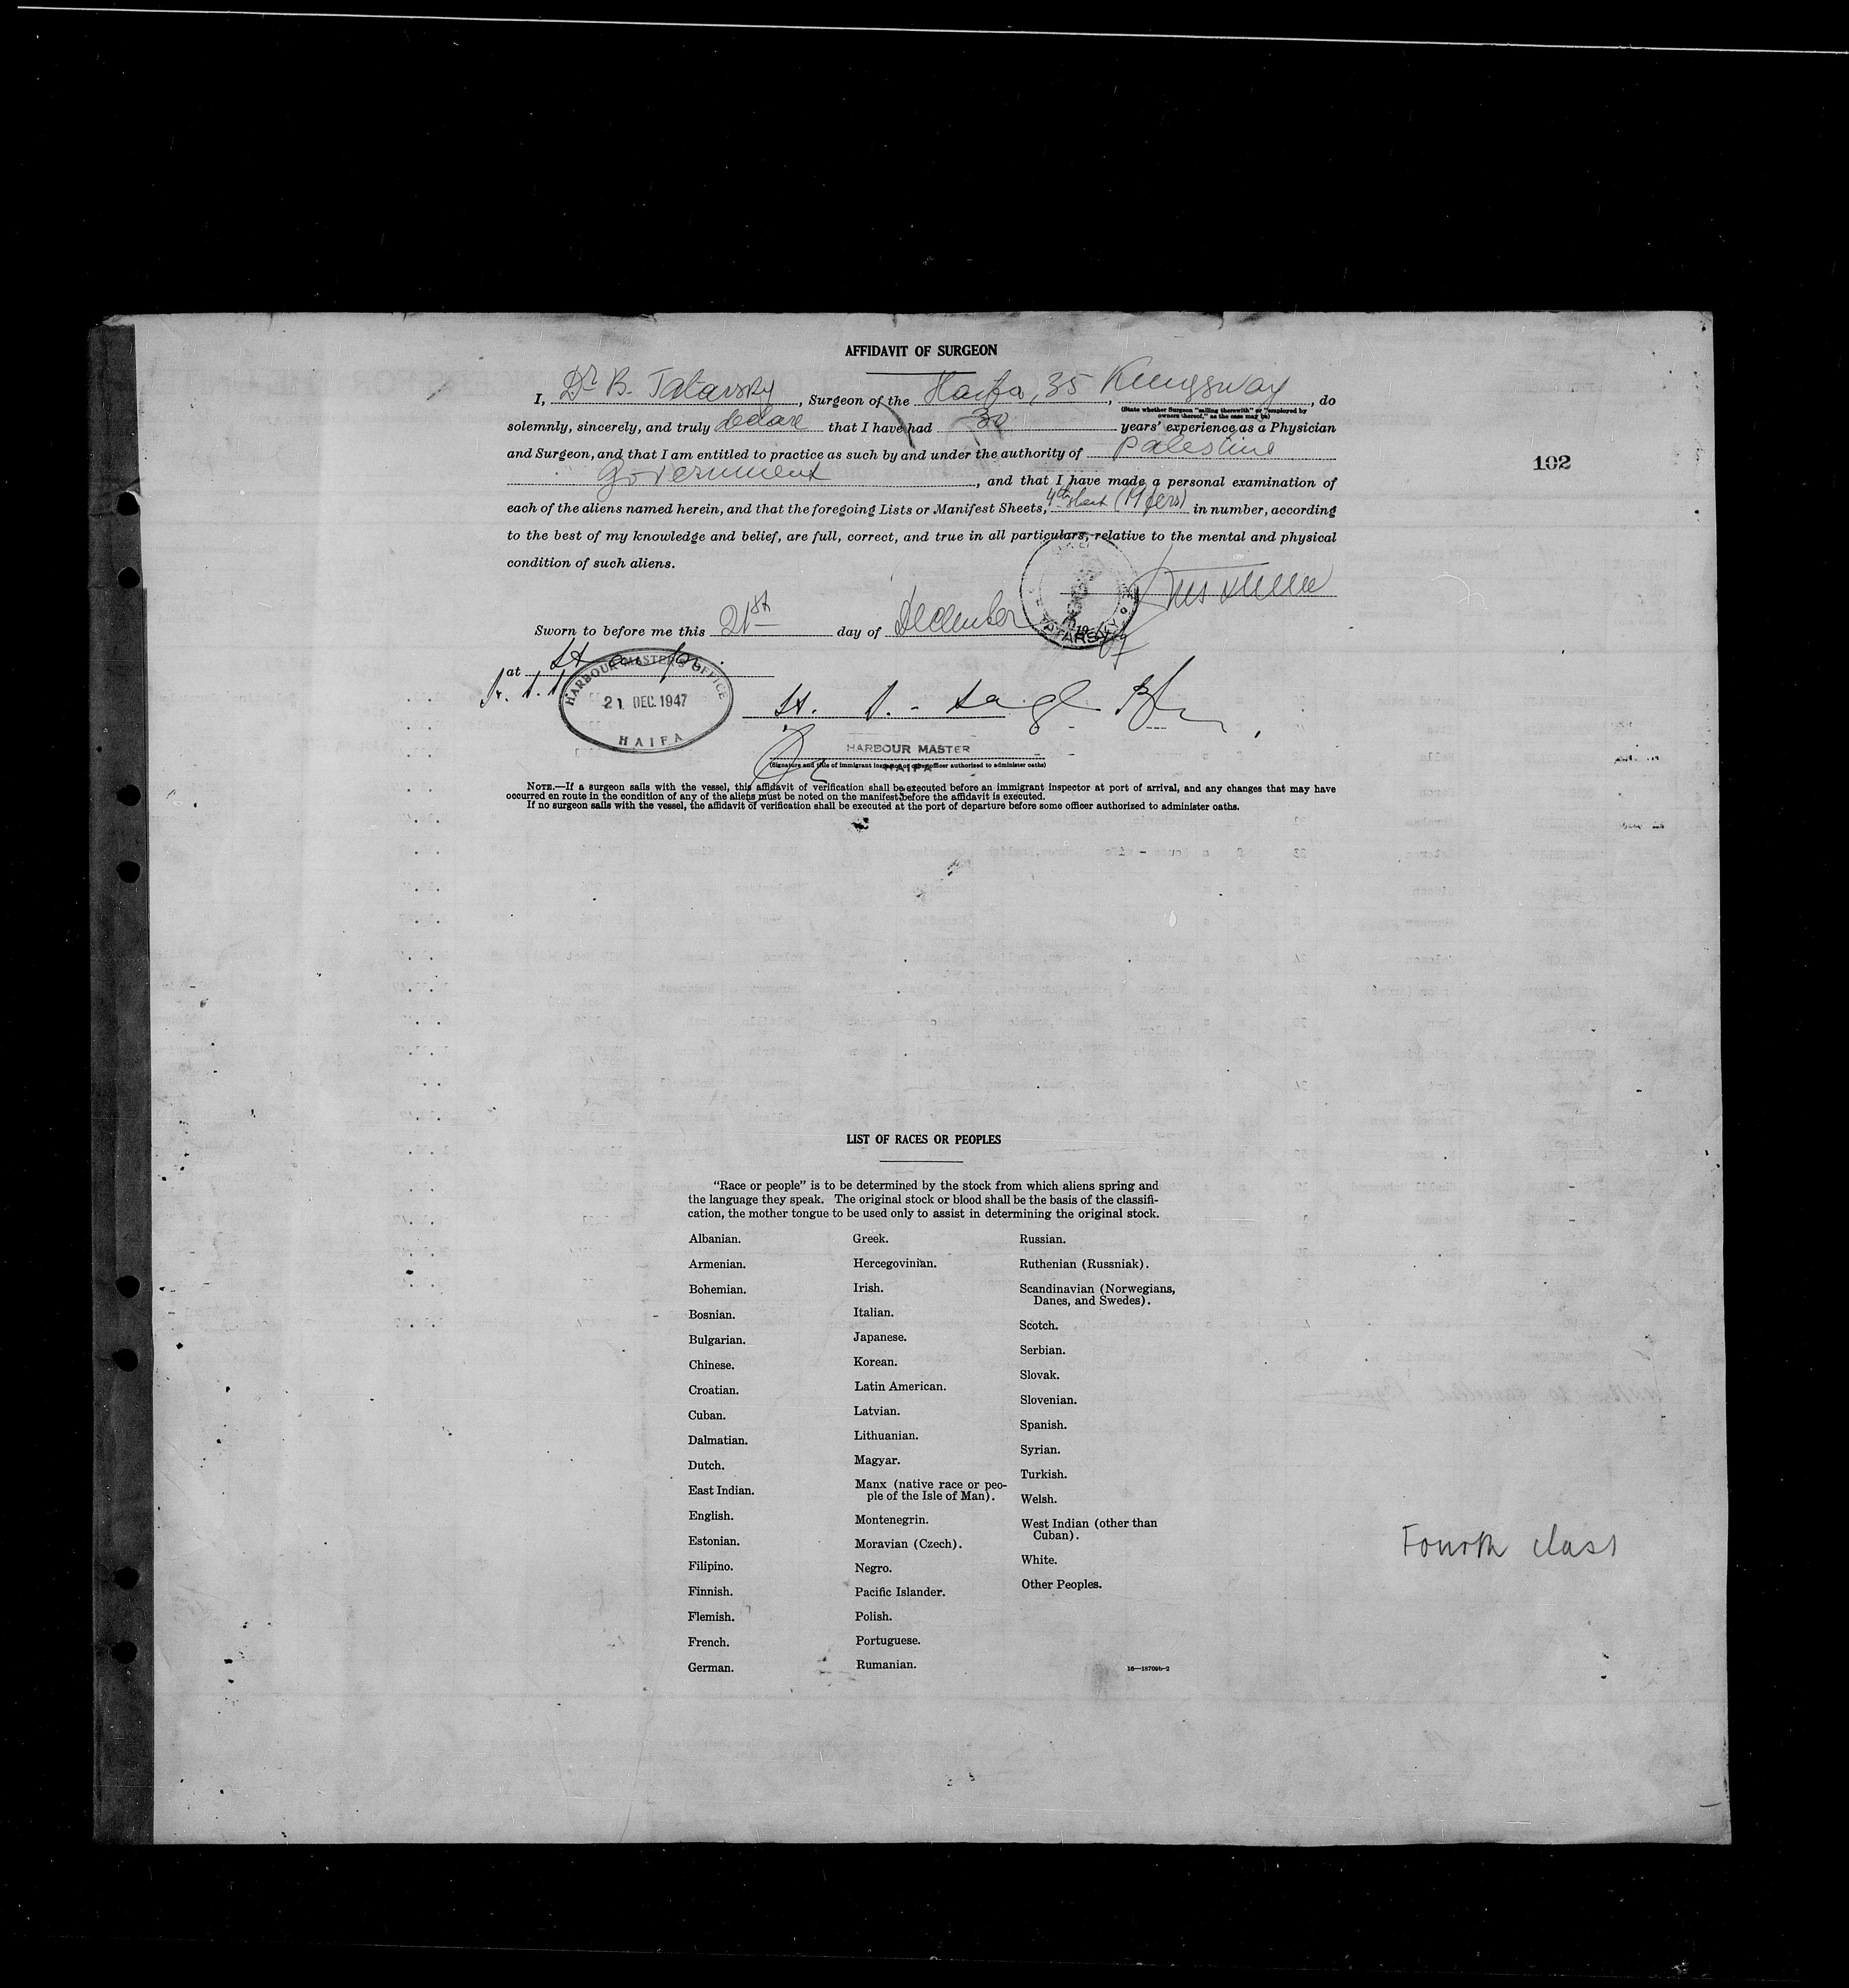 AFFIDAVIT OF SURGEON
I, Dr B. Tatarsky, Surgeon of the Haifa, 35 Kingsway, do
(State whether Surgeon "sailing therewith" or "employed by
owners thereof," as the case may be)
solemnly, sincerely, and truly declare that I have had 30 years' experience as a Physician
and Surgeon, and that I am entitled to practice as such by and under the authority of Palestine
Government, and that I have made a personal examination of
each of the aliens named herein, and that the foregoing Lists or Manifest Sheets, 4th sheet in number, according
to the best of my knowledge and belief, are full, correct, and true in all particulars, relative to the mental and physical
condition of such aliens.
102
Sworn to before me this 21st day of December 1947
TATARSKY
at
HARBOUR MASTER'S OFFICE
21 DEC. 1947
HAIFA
HARBOUR MASTER
HAIFA
(Signature and title of immigrant inspector or other officer authorized to administer oaths)
NOTE.—If a surgeon sails with the vessel, this affidavit of verification shall be executed before an immigrant inspector at port of arrival, and any changes that may have
occurred en route in the condition of any of the aliens must be noted on the manifest before the affidavit is executed.
If no surgeon sails with the vessel, the affidavit of verification shall be executed at the port of departure before some officer authorized to administer oaths.
LIST OF RACES OR PEOPLES
"Race or people" is to be determined by the stock from which aliens spring and
the language they speak. The original stock or blood shall be the basis of the classifi-
cation, the mother tongue to be used only to assist in determining the original stock.
Albanian.
Armenian.
Bohemian.
Bosnian.
Bulgarian.
Chinese.
Croatian.
Cuban.
Dalmatian.
Dutch.
East Indian.
English.
Estonian.
Filipino.
Finnish.
Flemish.
French.
German.
Greek.
Hercegovinian.
Irish.
Italian.
Japanese.
Korean.
Latin American.
Latvian.
Lithuanian.
Magyar.
Manx (native race or peo-
ple of the Isle of Man).
Montenegrin.
Moravian (Czech).
Negro.
Pacific Islander.
Polish.
Portuguese.
Rumanian.
Russian.
Ruthenian (Russniak).
Scandinavian (Norwegians,
Danes, and Swedes).
Scotch.
Serbian.
Slovak.
Slovenian.
Spanish.
Syrian.
Turkish.
Welsh.
West Indian (other than
Cuban).
White.
Other Peoples.
16—18709b-2
Fourth class